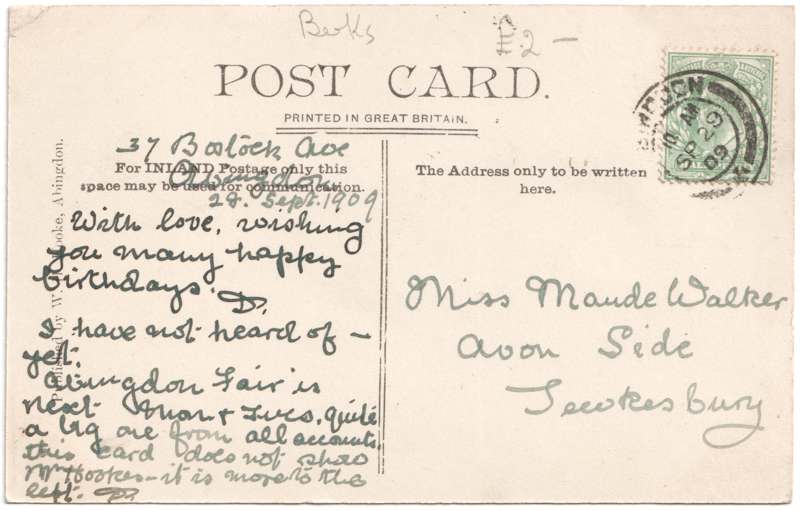 Berks
£2 —
POST CARD.
PRINTED IN GREAT BRITAIN.
For INLAND Postage only this
space may be used for communication.
The Address only to be written
here.
37 Bostock Ave
Abingdon
28. Sept. 1909
With love, wishing
you many happy
birthdays. D.
I have not heard of —
yet.
Abingdon Fair is
next Mon & Tues, quite
a big one from all accounts.
this card does not show
Mr Hookes — it is more to the
left. D.
Miss Maude Walker
Avon Side
Tewkesbury
Published by W. Hooke, Abingdon.
10 AM
SP 29
09